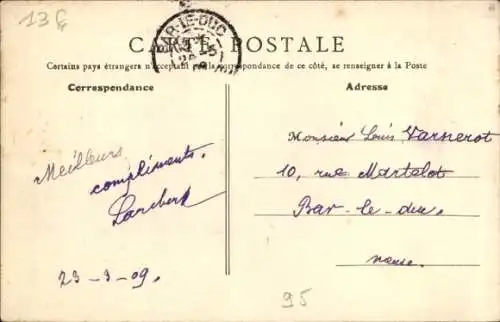 13 f
BAR-LE-DUC
CARTE POSTALE
Certains pays étrangers n'acceptant pas la correspondance de ce côté, se renseigner à la Poste
Correspondance
Adresse
Meilleurs
compliments.
Monsieur Louis Varnerot
10, rue Martelot
Bar-le-duc.
Meuse.
23-3-09.
95